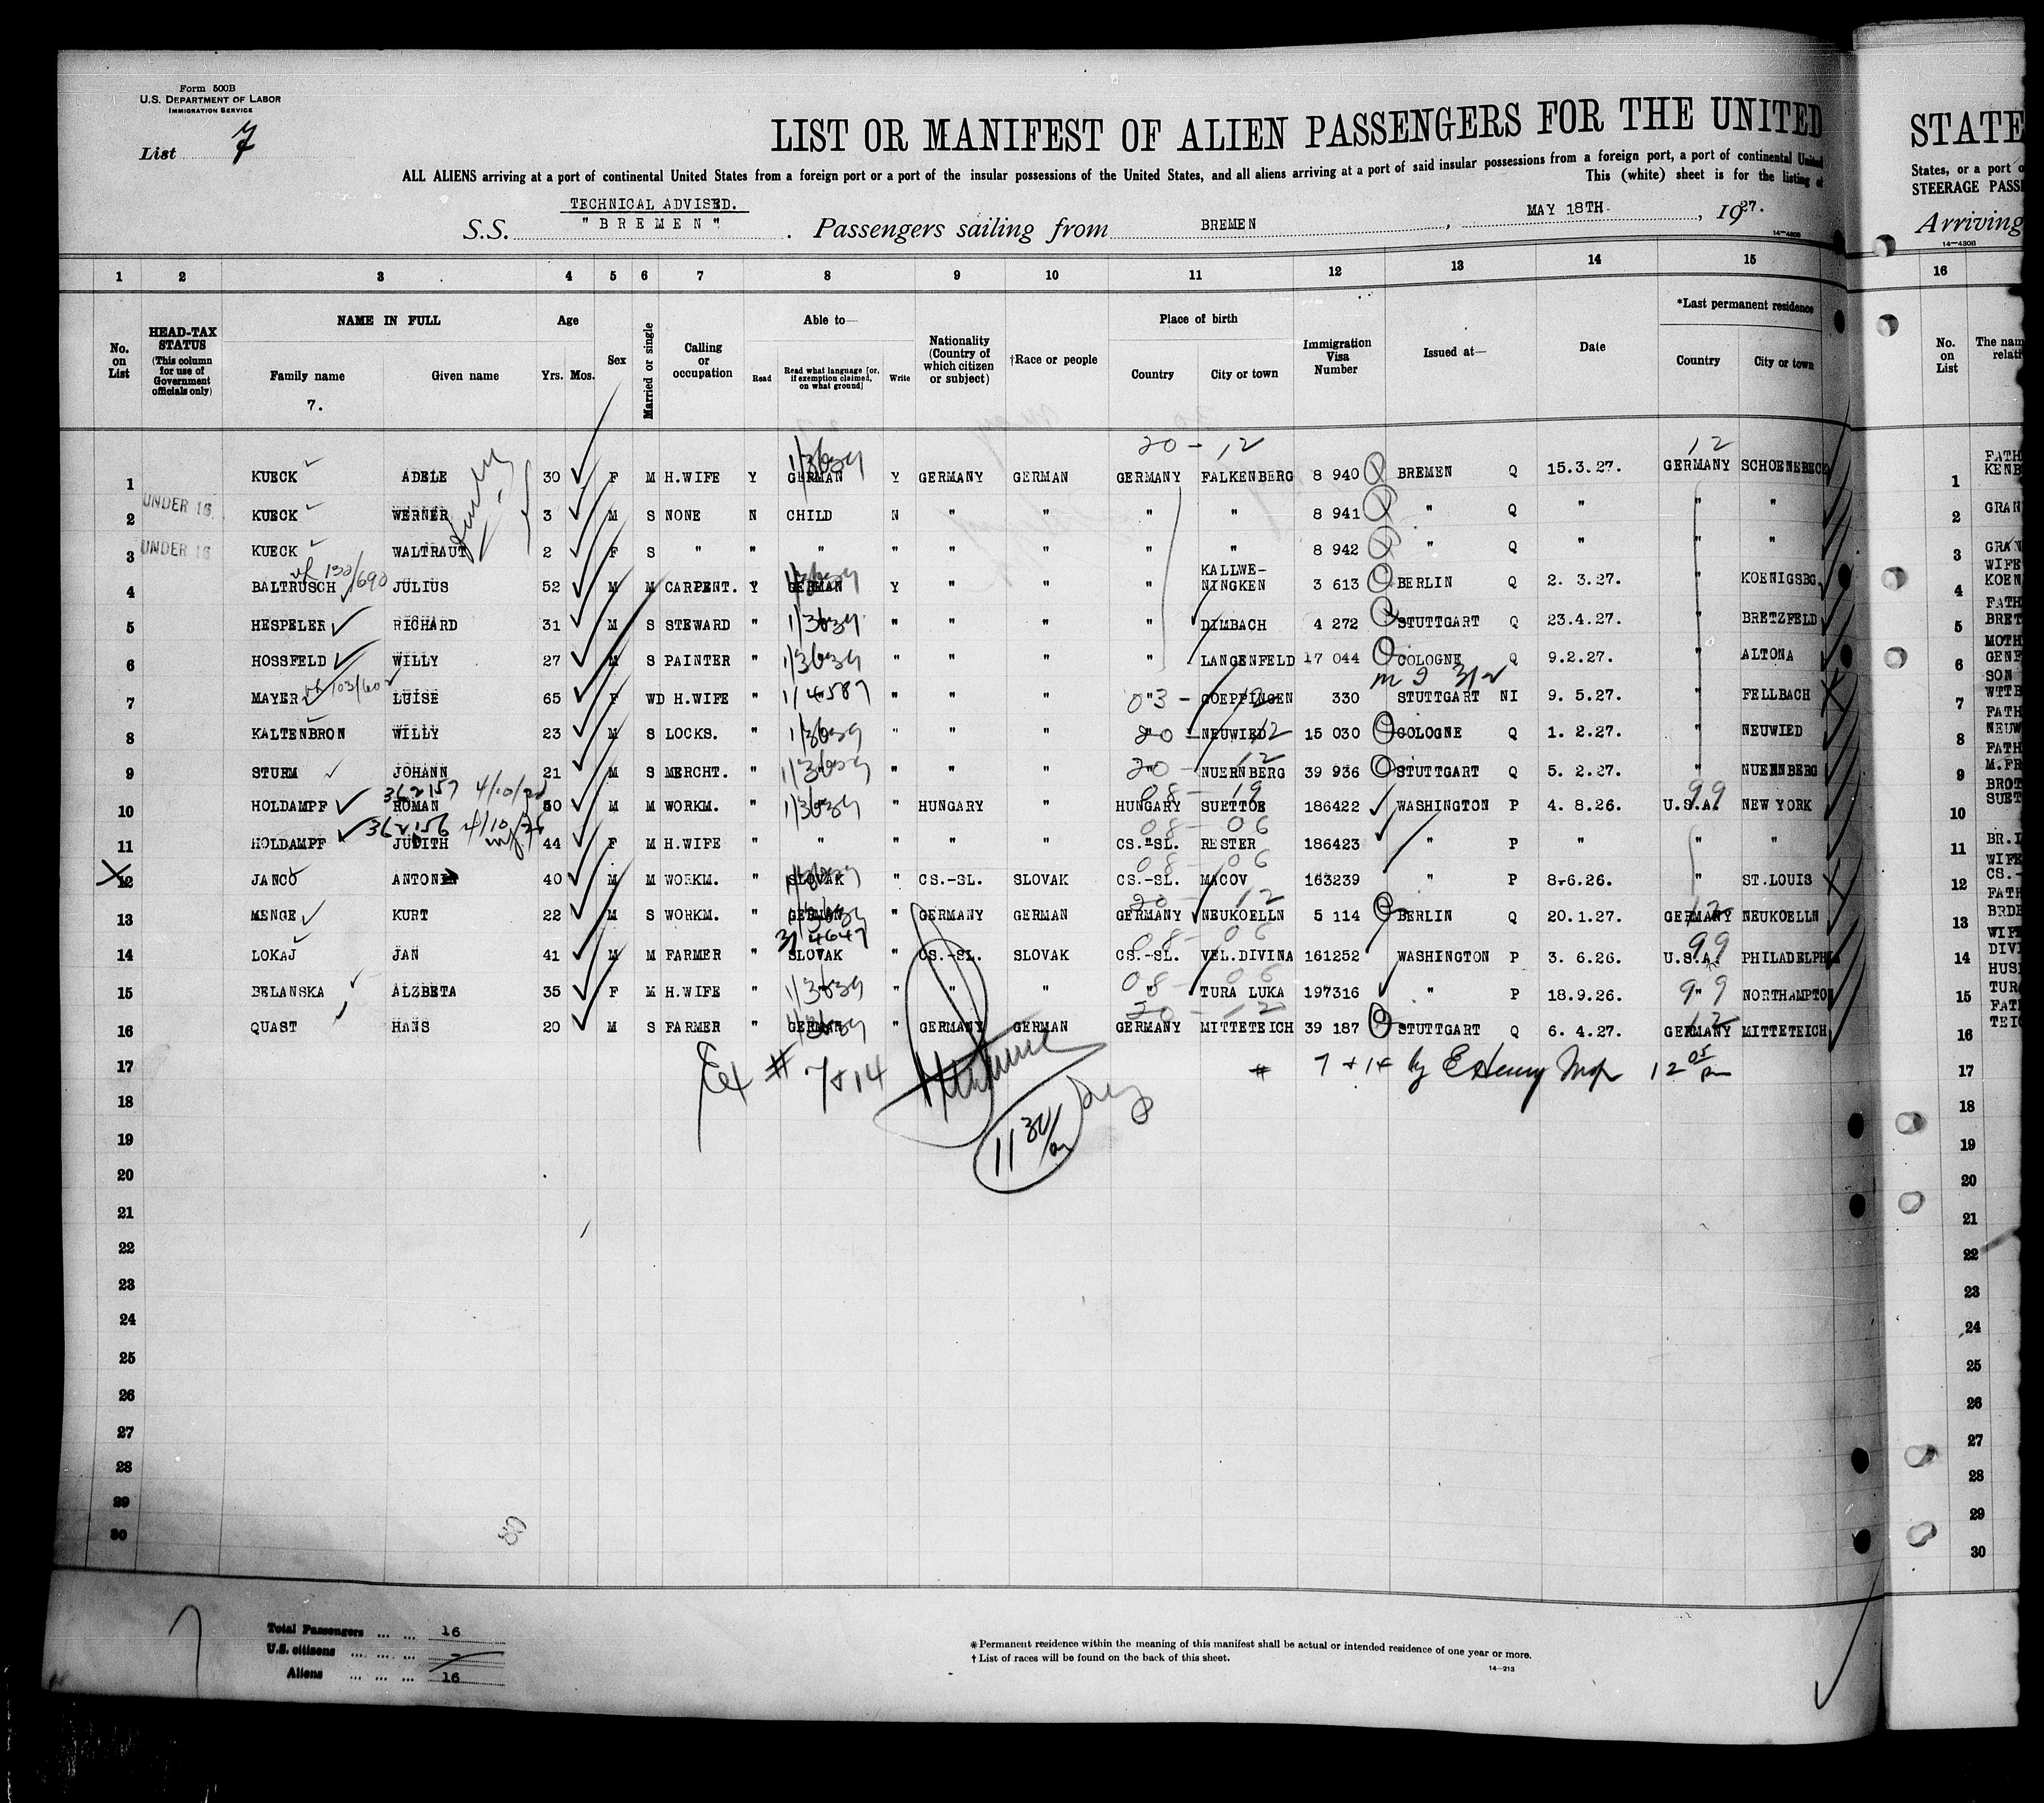 Form 500B
U.S. DEPARTMENT OF LABOR
IMMIGRATION SERVICE
List 7
LIST OR MANIFEST OF ALIEN PASSENGERS FOR THE UNITED
ALL ALIENS arriving at a port of continental United States from a foreign port or a port of the insular possessions of the United States, and all aliens arriving at a port of said insular possessions from a foreign port, a port of continental United
This (white) sheet is for the listing of
TECHNICAL ADVISED.
S.S. "BREMEN". Passengers sailing from BREMEN, MAY 18TH., 1927.
14-430B
STATE
States, or a port o
STEERAGE PASS
Arriving
14-430B
1 2 3 4 5 6 7 8 9 10 11 12 13 14 15 16
No. on List
HEAD-TAX STATUS (This column for use of Government officials only)
NAME IN FULL Family name Given name
7.
Age Yrs. Mos.
Sex
Married or single
Calling or occupation
Able to— Read Read what language [or, if exemption claimed, on what ground] Write
Nationality (Country of which citizen or subject)
†Race or people
Place of birth Country City or town
Immigration Visa Number
Issued at—
Date
*Last permanent residence Country City or town
No. on List
The nam
relati
20 - 12 12
1 KUECK ADELE 30 F M H.WIFE Y GERMAN Y GERMANY GERMAN GERMANY FALKENBERG 8 940 BREMEN Q 15.3.27. GERMANY SCHOENEBECK 1 FATH KENB
2 UNDER 16 KUECK WERNER 3 M S NONE N CHILD N " " " " 8 941 " Q " " " 2 GRAN
3 UNDER 16 KUECK WALTRAUT 2 F S " " " " " " " " 8 942 " Q " " " 3 GRAN WIFE
130/690
4 BALTRUSCH JULIUS 52 M M CARPENT. Y GERMAN Y " " " KALLWE-NINGKEN 3 613 BERLIN Q 2. 3.27. " KOENIGSBG. 4 KOEN FATH
5 HESPELER RICHARD 31 M S STEWARD " " " " " " DIMBACH 4 272 STUTTGART Q 23.4.27. " BRETZFELD 5 BRET MOTH
6 HOSSFELD WILLY 27 M S PAINTER " " " " " " LANGENFELD 17 044 COLOGNE Q 9.2.27. " ALTONA 6 GENF SON
7 MAYER LUISE 65 F WD H.WIFE " 1/4587 " " " 03 - GOEPPINGEN 330 STUTTGART NI 9. 5.27. " FELLBACH 7 WTTB FATH
8 KALTENBRON WILLY 23 M S LOCKS. " " " " " 20 - NEUWIED 12 15 030 COLOGNE Q 1. 2.27. " NEUWIED 8 NEUW FATH
20 - 12
9 STURM JOHANN 21 M S MERCHT. " " " " " " NUERNBERG 39 936 STUTTGART Q 5. 2.27. " NUERNBERG 9 M.FR BROT
362157 08 - 19 99
10 HOLDAMPF ROMAN 50 M M WORKM. " " " HUNGARY " HUNGARY SUETTOE 186422 WASHINGTON P 4. 8.26. U.S.A. NEW YORK 10 SUET
362156 08 - 06
11 HOLDAMPF JUDITH 44 F M H.WIFE " " " " " CS.-SL. RESTER 186423 " P " " " 11 BR.I WIFE
08 - 06
12 JANCO ANTONIN 40 M M WORKM. " SLOVAK " CS.-SL. SLOVAK CS.-SL. MACOV 163239 " P 8.6.26. " ST.LOUIS 12 CS.- FATH
20 - 12
13 MENGE KURT 22 M S WORKM. " GERMAN " GERMANY GERMAN GERMANY NEUKOELLN 5 114 BERLIN Q 20.1.27. GERMANY NEUKOELLN 13 BRDE WIFE
08 - 06 99
14 LOKAJ JAN 41 M M FARMER " SLOVAK " CS.-SL. SLOVAK CS.-SL. VEL.DIVINA 161252 WASHINGTON P 3. 6.26. U.S.A. PHILADELPHIA 14 DIVI HUSB
08 - 06
15 BELANSKA ALZBETA 35 F M H.WIFE " " " " " " TURA LUKA 197316 " P 18.9.26. 9"9 NORTHAMPTON 15 TURA FATH
20 - 12 12
16 QUAST HANS 20 M S FARMER " GERMAN " GERMANY GERMAN GERMANY MITTETEICH 39 187 STUTTGART Q 6. 4.27. GERMANY MITTETEICH 16 TEIC
17 Ex # 7 & 14 # 7 & 14 by E Henry 12 05 pm 17
18 18
19 11 30/am 19
20 20
21 21
22 22
23 23
24 24
25 25
26 26
27 27
28 28
29 29
30 30
Total Passengers ... ... 16
U.S. citizens ... ... ... -
Aliens ... ... ... 16
* Permanent residence within the meaning of this manifest shall be actual or intended residence of one year or more.
† List of races will be found on the back of this sheet.
14-213